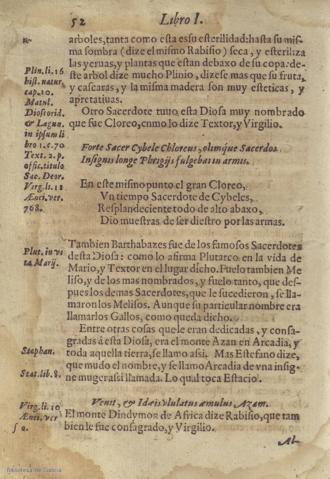 52 Libro I.
arboles, tanta como esta es su esterilidad: hasta su mis-
ma sombra (dize el mismo Rabisio) seca, y esteriliza
las yeruas, y plantas que estan debaxo de su copa: de-
ste arbol dize mucho Plinio, dizese mas que su fruta,
y cascaras, y la misma madera son muy esteticas, y
apretatiuas.
Plin. li. 16
hist. natur
cap. 10.
Matul.
Dioscorid.
& Lagun.
in ipsum li
bro 1. c. 70
Text. 2. p.
offic. titulo
Sac. Deor.
Virg. li. 11
Æneí. ver
768.
Otro Sacerdote tuuo esta Diosa muy nombrado
que fue Cloreo, como lo dize Textor, y Virgilio.
Forte Sacer Cybele Chloreus, olimque Sacerdos
Insignis longe Phrigijs fulgebat in armis.
En este mismo punto el gran Cloreo,
Vn tiempo Sacerdote de Cybeles,
Resplandeciente todo de alto abaxo,
Dio muestras de ser diestro por las armas.
Plut. in vi
ta Marij.
Tambien Barthabazes fue de los famosos Sacerdotes
desta Diosa: como lo afirma Plutarco en la vida de
Mario, y Textor en el lugar dicho. Fuelo tambien Me
liso, y de los mas nombrados, y fuelo tanto, que des-
pues los demas Sacerdotes, que le sucedieron, se lla-
maron los Melisos. Aunque su particular nombre era
llamarlos Gallos, como queda dicho.
Entre otras cosas que le eran dedicadas, y consa-
gradas á esta Diosa, era el monte Azan en Arcadia, y
toda aquella tierra, se llamo assi. Mas Estefano dize,
que mudo el nombre, y se llamo Arcadia de vna insig-
ne muger assi llamada. Lo qual toca Estacio.
Stephan.
Stat. lib. 8.
Venit, & Idæis vlulatus æmulus Azam.
Virg. li. 10
Æneí. ver
52.
El monte Dindymon de Africa dize Rabisio, que tam
bien le fue consagrado, y Virgilio.
Al-